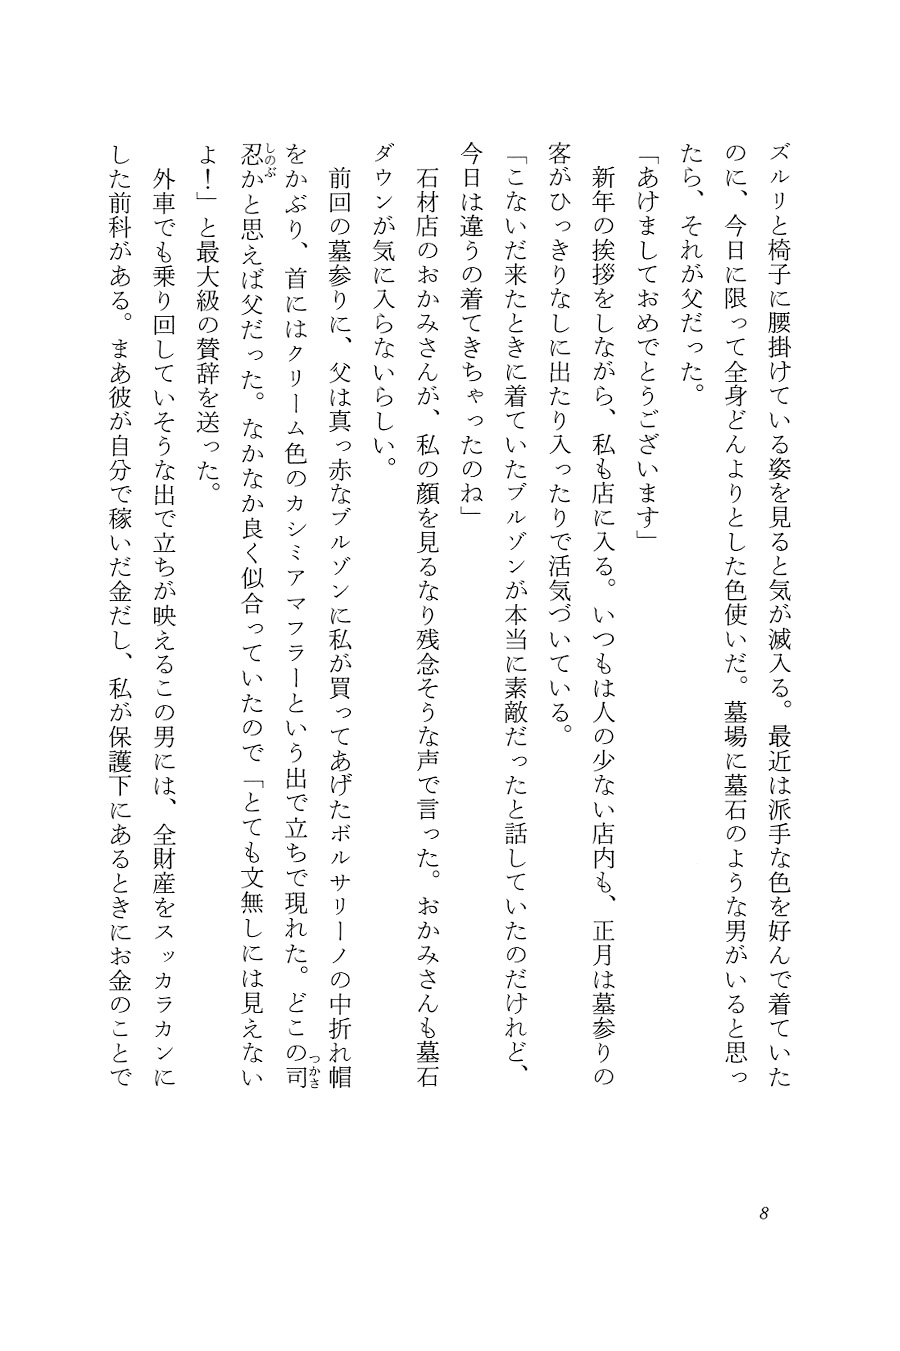 ズルリと椅子に腰掛けている姿を見ると気が滅入る。最近は派手な色を好んで着ていた
のに、今日に限って全身どんよりとした色使いだ。墓場に墓石のような男がいると思っ
たら、それが父だった。
「あけましておめでとうございます」
　新年の挨拶をしながら、私も店に入る。いつもは人の少ない店内も、正月は墓参りの
客がひっきりなしに出たり入ったりで活気づいている。
「こないだ来たときに着ていたブルゾンが本当に素敵だったと話していたのだけれど、
今日は違うの着てきちゃったのね」
　石材店のおかみさんが、私の顔を見るなり残念そうな声で言った。おかみさんも墓石
ダウンが気に入らないらしい。
　前回の墓参りに、父は真っ赤なブルゾンに私が買ってあげたボルサリーノの中折れ帽
をかぶり、首にはクリーム色のカシミアマフラーという出で立ちで現れた。どこの司つかさ
忍しのぶかと思えば父だった。なかなか良く似合っていたので「とても文無しには見えない
よ！」と最大級の賛辞を送った。
　外車でも乗り回していそうな出で立ちが映えるこの男には、全財産をスッカラカンに
した前科がある。まあ彼が自分で稼いだ金だし、私が保護下にあるときにお金のことで
8